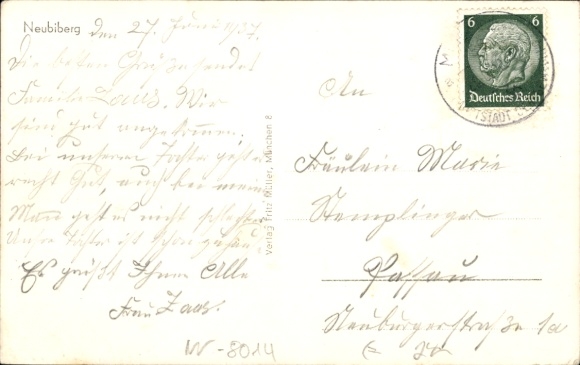 Neubiberg den 27. Juni 1937.
Die besten Grüße sendet
Familie Zaus. Wir
sind gut angekommen,
bei unserer Tochter geht es
recht Gut, auch bei meinem
Mann geht es nicht schlechter
Unsre Tochter ist schon
Es grüßt Ihnen Alle
Frau Zaus.
W-8014
Verlag Fritz Müller, München 8
6 6
Deutsches Reich
An
Fräulein Marie
Stemplinger
Passau
Neuburgerstraße 1a